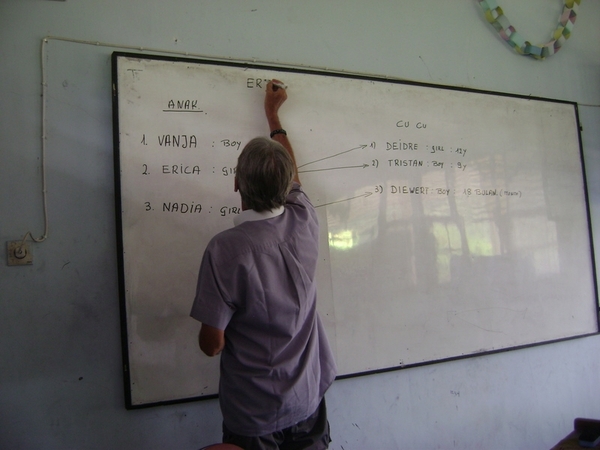 ER
ANAK.
CU CU
1. VANJA : BOY
1) DEIDRE : GIRL : 12y
2. ERICA : GI
2) TRISTAN : BOY : 9y
3) DIEWERT : BOY : 18 BULAN (MONTH)
3. NADIA : GIRL